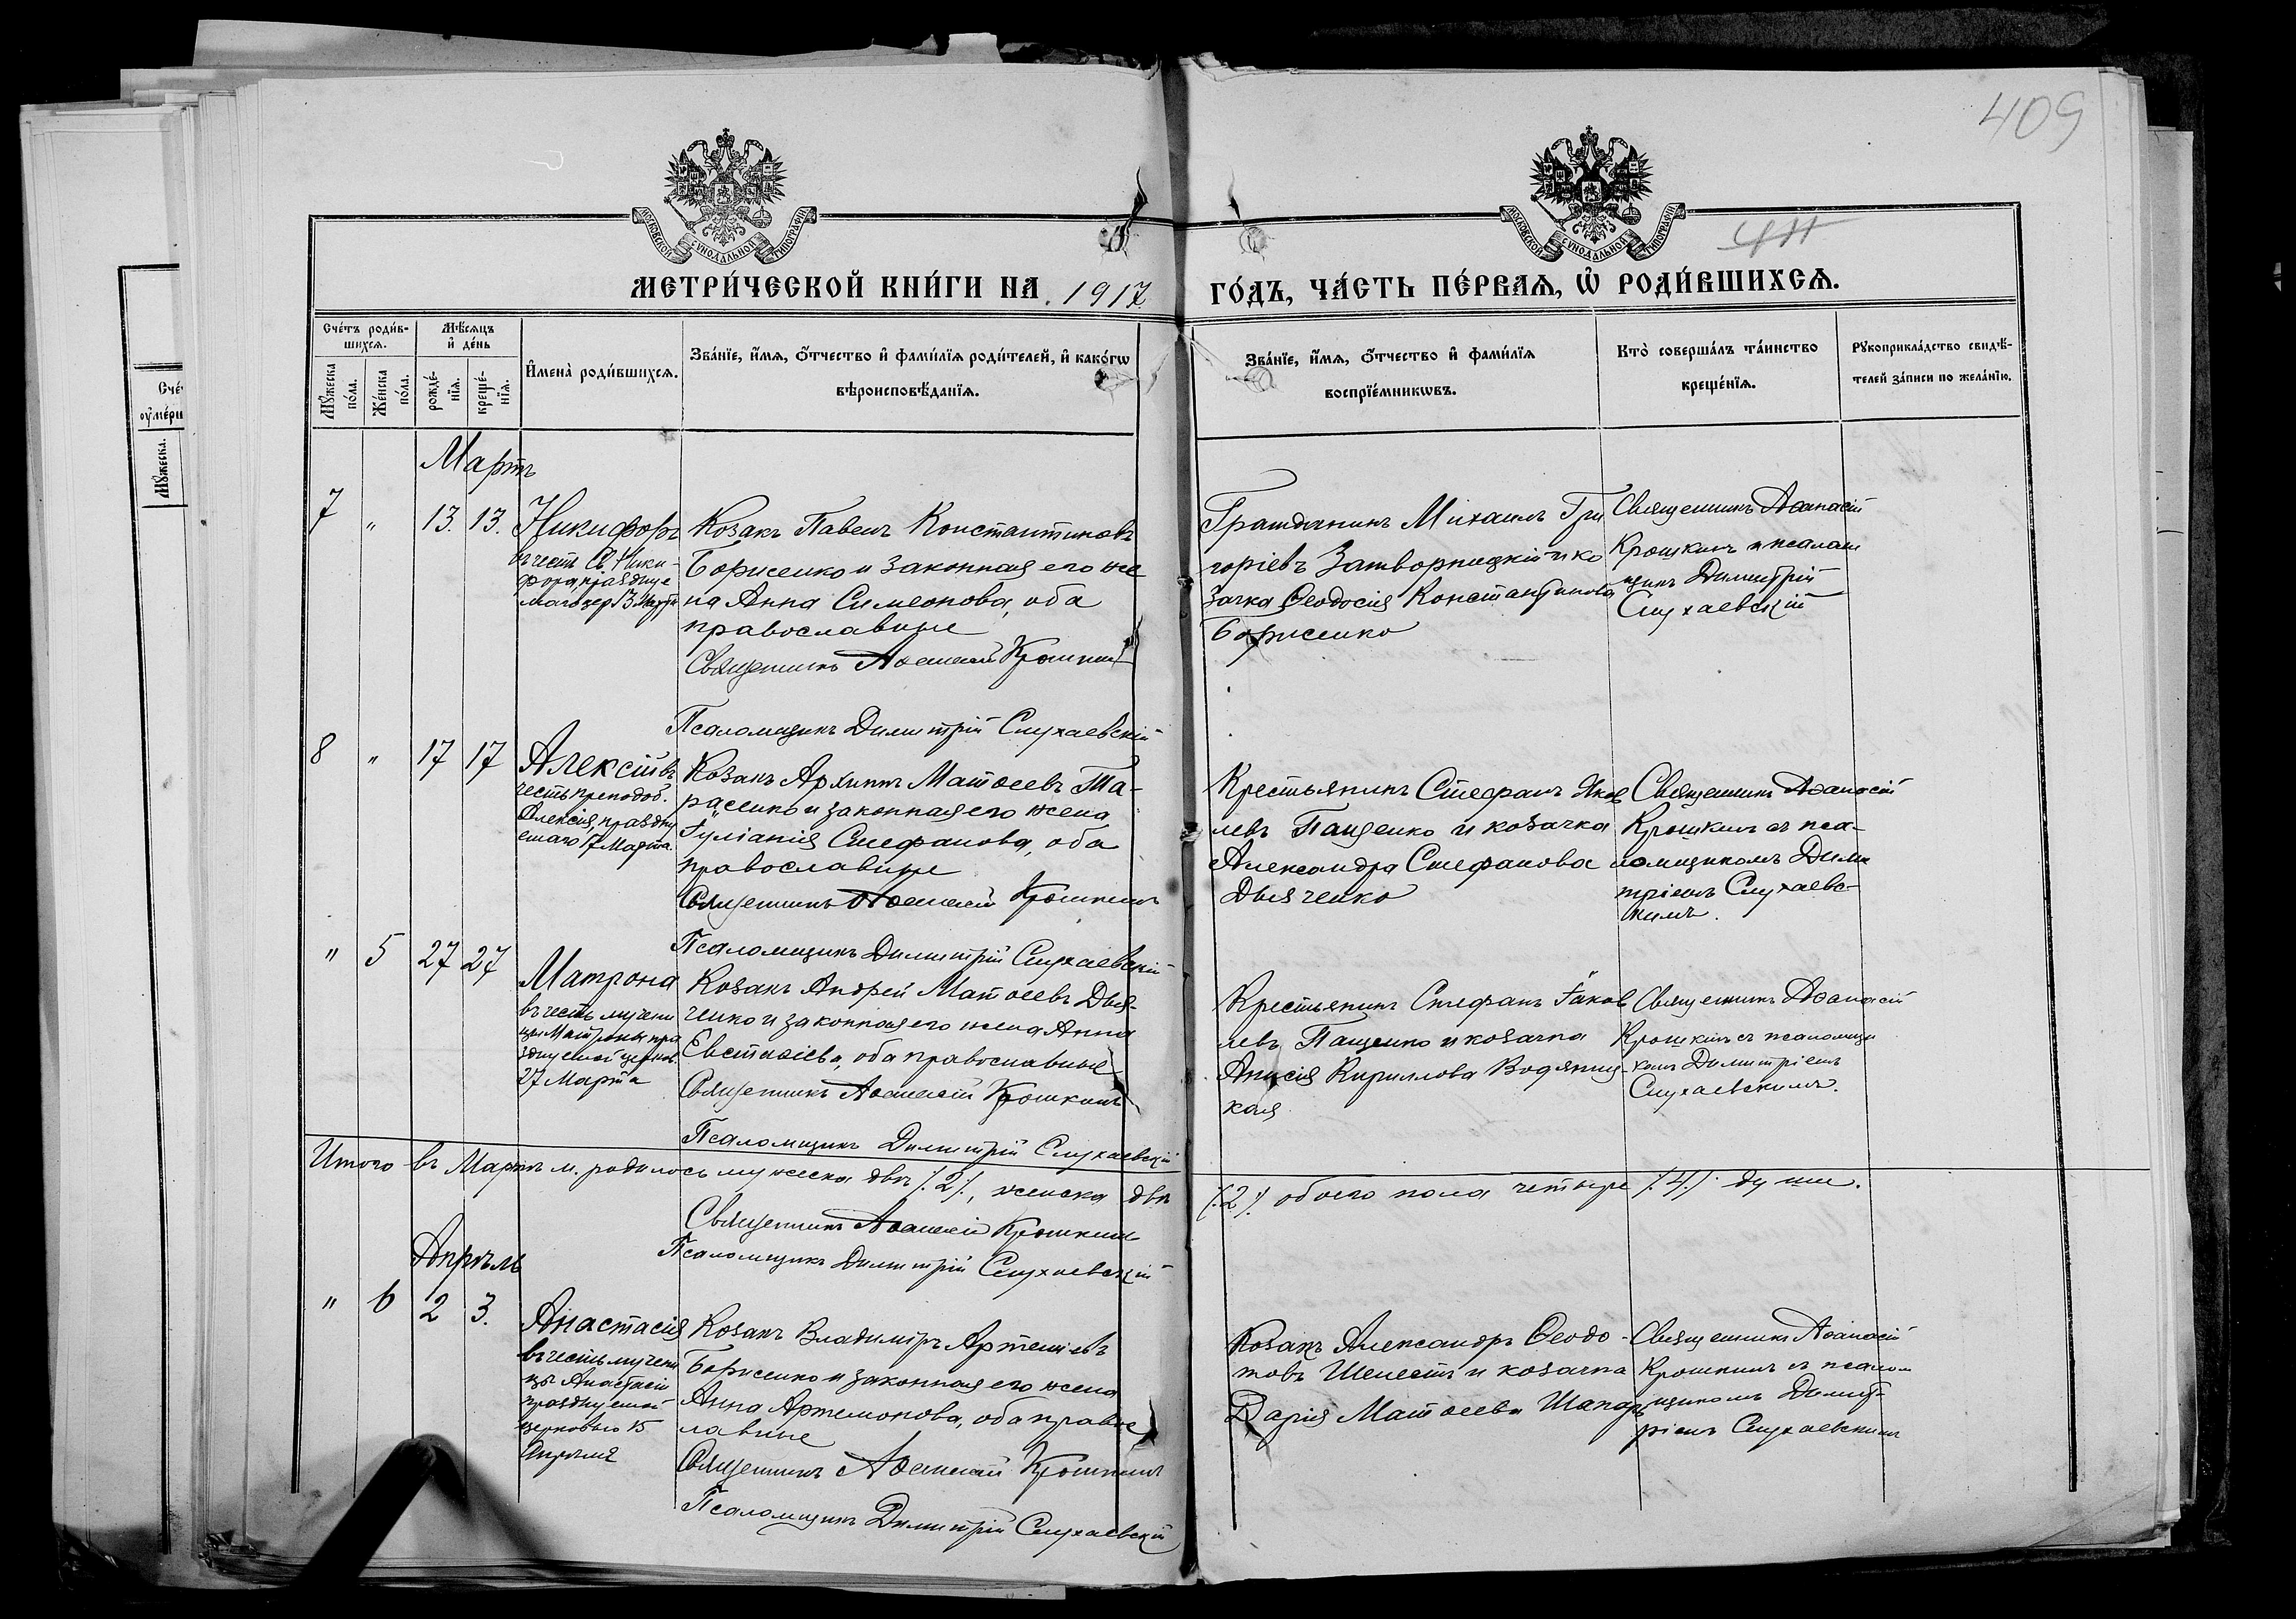 409
411
МОСКОВСКОЙ СѴНОДАЛЬНОЙ ТИПОГРАФІИ
МОСКОВСКОЙ СѴНОДАЛЬНОЙ ТИПОГРАФІИ
МЕТРИ́ЧЕСКОЙ КНИ́ГИ НА 1917
ГО́ДЪ, ЧА́СТЬ ПЕ́РВАѦ, Ѽ РОДИ́ВШИХСѦ.
Сче́тъ роди́в-
шихсѧ.
Мꙋ́жеска по́ла.
Же́нска по́ла.
Мѣ́сѧцъ и҆ де́нь
рожде́-
нїѧ.
креще́-
нїѧ.
И҆мена̀ роди́вшихсѧ.
Зва́нїе, и҆́мѧ, ѻ҆́тчество и҆ фами́лїѧ роди́телей, и҆ како́гѡ
вѣроисповѣ́данїѧ.
Зва́нїе, и҆́мѧ, ѻ҆́тчество и҆ фами́лїѧ
воспрїе́мникѡвъ.
Кто̀ соверша́лъ та́инство
креще́нїѧ.
Рꙋкоприкла́дство свидѣ́-
телей за́писи по жела́нїю.
Сче́
оу҆ме́рш
Мꙋ́жеска.
Мартъ
7 " 13. 13. Никифоръ
въ честь Св. Ники-
фора, праздуе
маго цер 13 Марта
Козакъ Павелъ Константиновъ
Борисенко и законная его же
на Анна Симеонова, оба
православные
Священникъ Аѳанасій Крошкинъ
Псаломщикъ Димитрій Слухаевскій
Гражданинъ Михаилъ Гри
горіевъ Затворницкій и ко
зачка Ѳеодосія Константинова
Борисенко
Священникъ Аѳанасій
Крошкинъ и псалом
щикъ Димитрій
Слухаевскій
8 " 17 17 Алексій въ
честь преподоб.
Алексія, праздну
емаго 17 Марта
Козакъ Архипъ Матѳеевъ Та-
расенко и законная его жена
Іуліанія Стефанова, оба
православные
Священникъ Аѳанасій Крошкинъ
Псаломщикъ Димитрій Слухаевскій
Крестьянинъ Стефанъ Яков
левъ Пащенко и козачка
Александра Стефанова
Дьяченко
Священникъ Аѳанасій
Крошкинъ съ пса-
ломщикомъ Дими
тріемъ Слухаевс-
кимъ.
" 5 27 27 Матрона
въ честь мучени
цы Матроны пра
зднуемой церков.
27 Марта
Козакъ Андрей Матѳеевъ Дья-
ченко и законная его жена Анна
Евстафіева, оба православные
Священникъ Аѳанасій Крошкинъ
Псаломщикъ Димитрій Слухаевскій
Крестьянинъ Стефанъ Іаков
левъ Пащенко и козачка
Анисія Кириллова Водяниц-
кая
Священникъ Аѳанасій
Крошкинъ съ псаломщи
комъ Димитріемъ
Слухаевскимъ.
Итого въ Мартѣ м. родилось мужеска двѣ /.2/., женска двѣ
/.2/. обоего пола четыре /.4/. души.
Священникъ Аѳанасій Крошкинъ
Псаломщикъ Димитрій Слухаевскій
Апрѣль
" 6 2 3. Анастасія
въ честь мучени
цы Анастасіи
празднуемой
церковью 15
Апрѣля
Козакъ Владиміръ Артеміевъ
Борисенко и законная его жена
Анна Артемонова, оба правос
лавные
Священникъ Аѳанасій Крошкинъ
Псаломщикъ Димитрій Слухаевскій
Козакъ Александръ Ѳеодо-
товъ Шелестъ и козачка
Дарія Матѳеева Шапарь
Священникъ Аѳанасій
Крошкинъ съ псалом
щикомъ Димит-
ріемъ Слухаевскимъ